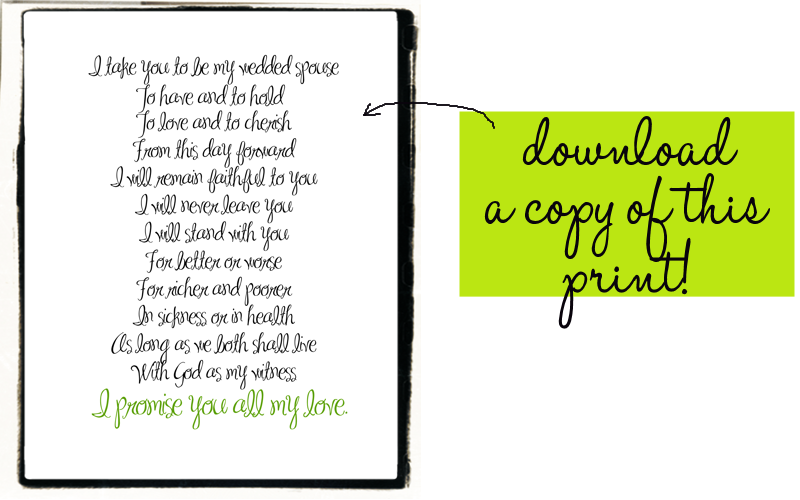 I take you to be my wedded spouse
To have and to hold
To love and to cherish
From this day forward
I will remain faithful to you
I will never leave you
I will stand with you
For better or worse
For richer and poorer
In sickness or in health
As long as we both shall live
With God as my witness
I promise you all my love.
download
a copy of this
print!